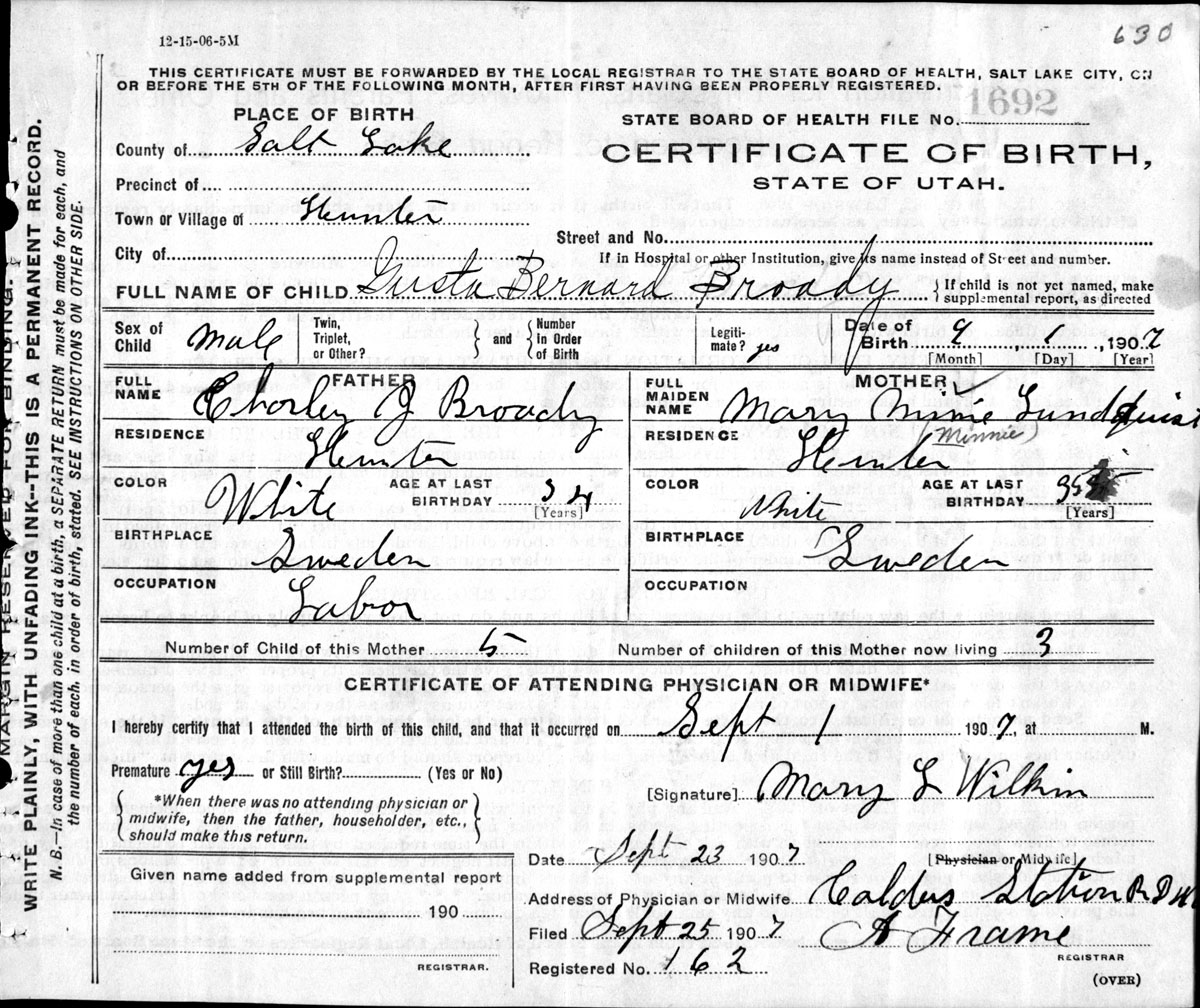 12-15-06-5M
630
THIS CERTIFICATE MUST BE FORWARDED BY THE LOCAL REGISTRAR TO THE STATE BOARD OF HEALTH, SALT LAKE CITY, ON
OR BEFORE THE 5TH OF THE FOLLOWING MONTH, AFTER FIRST HAVING BEEN PROPERLY REGISTERED.
PLACE OF BIRTH
STATE BOARD OF HEALTH FILE No. 1692
County of Salt Lake
CERTIFICATE OF BIRTH,
STATE OF UTAH.
Precinct of
Town or Village of Hunter
Street and No.
City of
If in Hospital or other Institution, give its name instead of Street and number.
FULL NAME OF CHILD Gusta Bernard Broady
If child is not yet named, make
supplemental report, as directed
Sex of Child Male
Twin, Triplet, or Other?
and
Number in Order of Birth
Legiti-mate? yes
Date of Birth 9, 1, 1907
[Month] [Day] [Year]
FATHER
FULL NAME Charley J Broady
MOTHER
FULL MAIDEN NAME Mary Minie Lundquist
(Minnie)
RESIDENCE Hunter
RESIDENCE Hunter
COLOR White
AGE AT LAST BIRTHDAY 34
[Years]
COLOR White
AGE AT LAST BIRTHDAY 35
[Years]
BIRTHPLACE Sweden
BIRTHPLACE Sweden
OCCUPATION Labor
OCCUPATION
Number of Child of this Mother 5
Number of children of this Mother now living 3
CERTIFICATE OF ATTENDING PHYSICIAN OR MIDWIFE*
I hereby certify that I attended the birth of this child, and that it occurred on Sept 1 1907, at M.
Premature yes or Still Birth? (Yes or No)
*When there was no attending physician or
midwife, then the father, householder, etc.,
should make this return.
[Signature] Mary L Wilkin
Date Sept 23 1907
[Physician or Midwife]
Given name added from supplemental report
190
REGISTRAR.
Address of Physician or Midwife Calders Station R D
Filed Sept 25 1907
A Frame
REGISTRAR
Registered No. 162
(OVER)
MARGIN RESERVED FOR BINDING.
WRITE PLAINLY, WITH UNFADING INK--THIS IS A PERMANENT RECORD.
N. B.—In case of more than one child at a birth, a SEPARATE RETURN must be made for each, and
the number of each, in order of birth, stated. SEE INSTRUCTIONS ON OTHER SIDE.